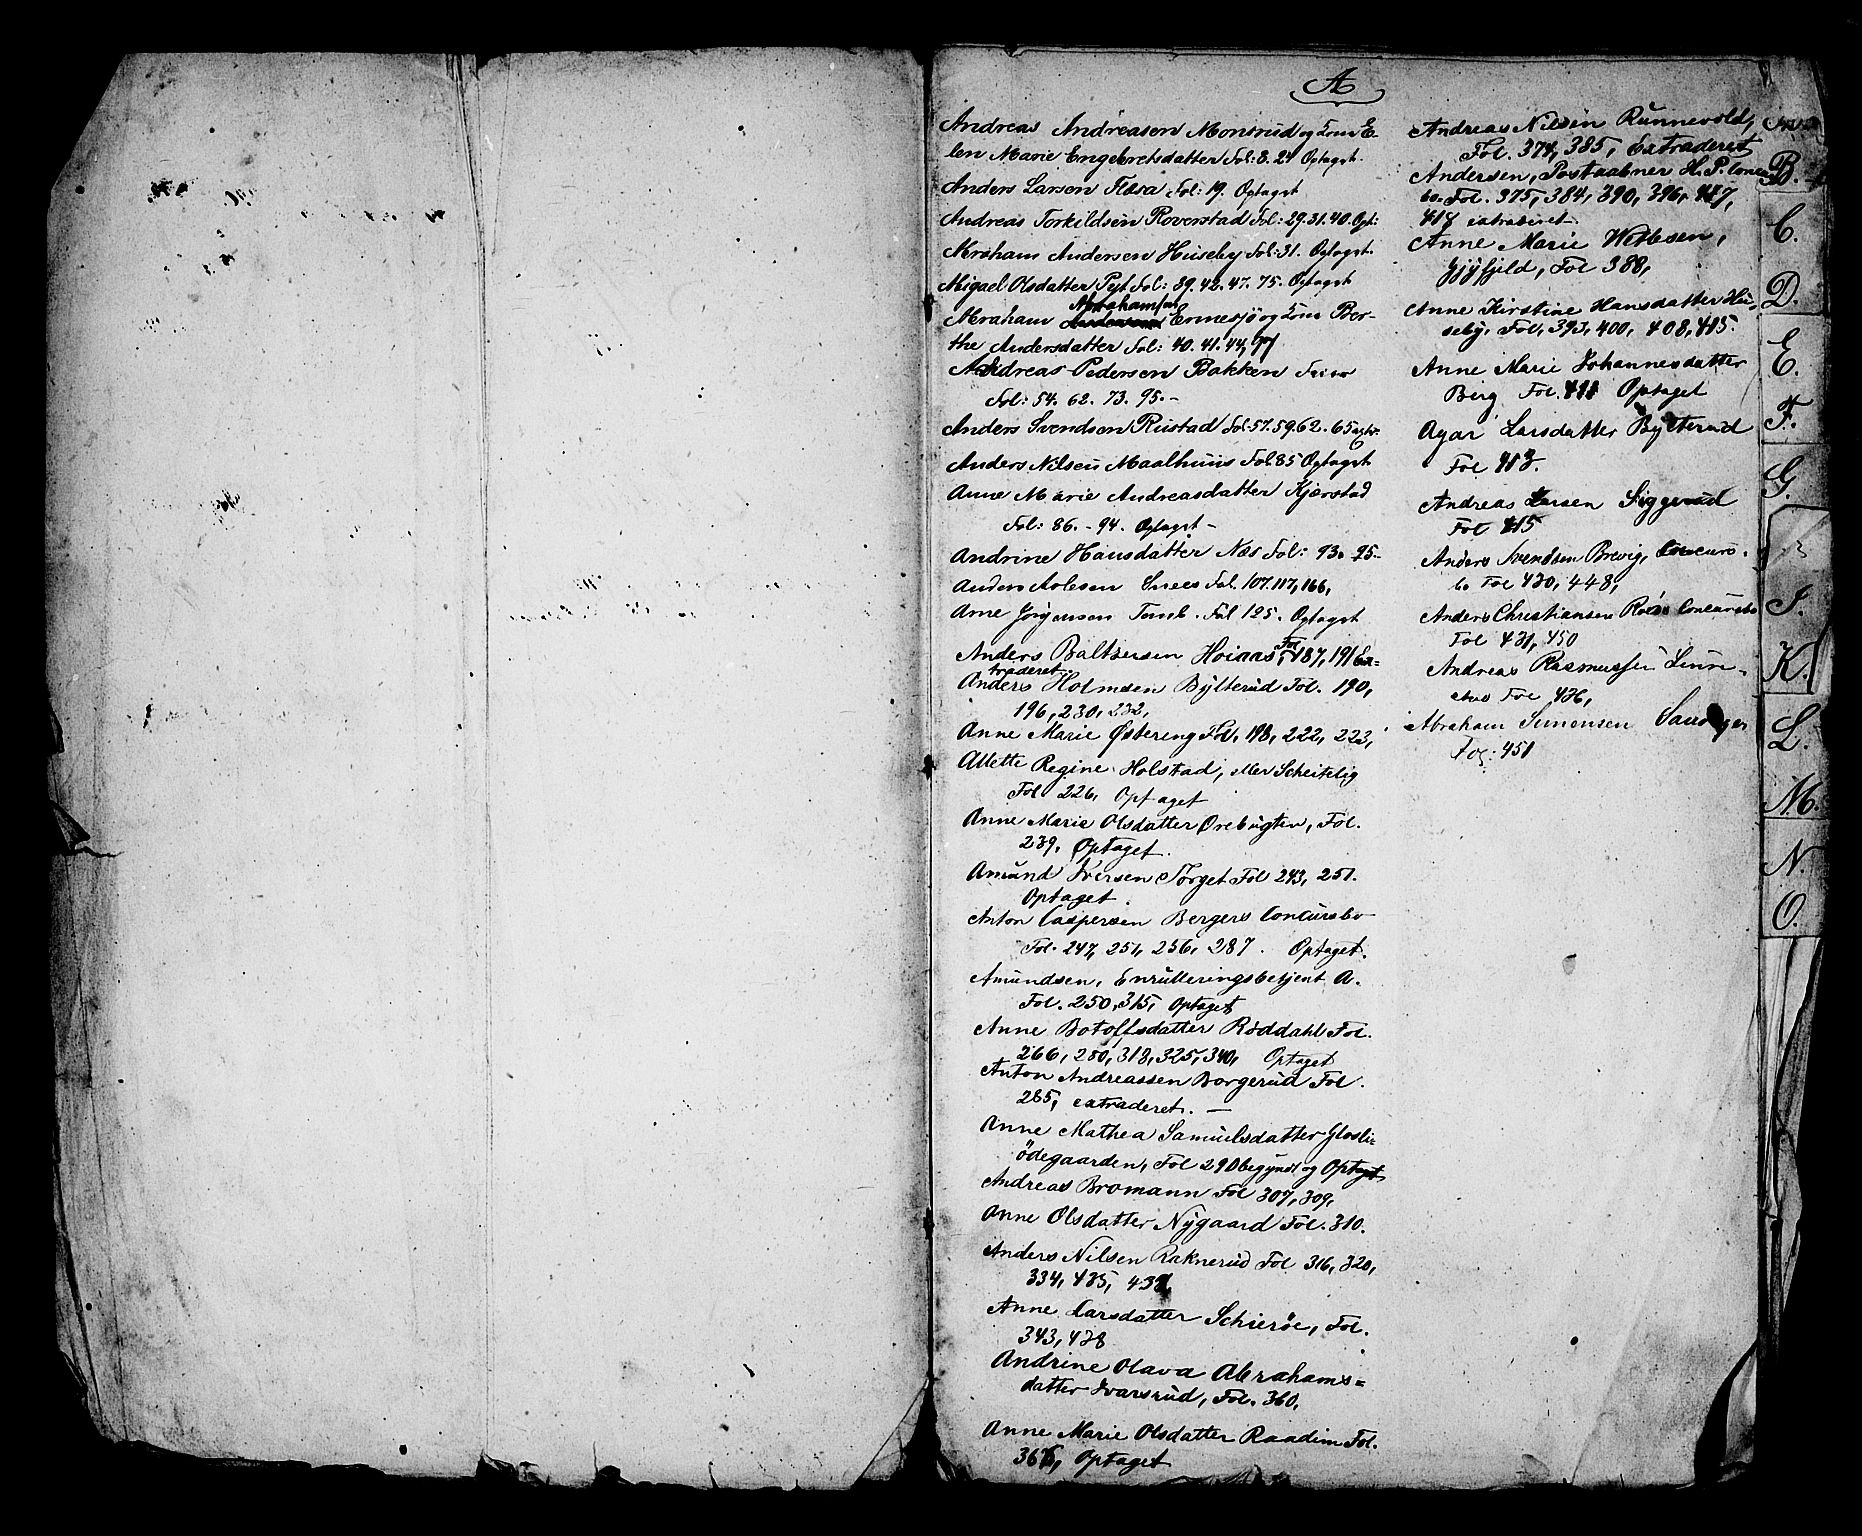 A
Andreas Andreasen Monsrud og Kone E-
len Marie Engebretsdatter Fol: 8. 24 Optaget.
Anders Larsen Flesa Fol: 19. Optaget
Andreas Torkildsen Roverstad Fol: 29. 31. 40. Opt:
Abraham Andersen Huseby Fol: 31. Optaget.
Abigael Olsdatter Pyt Fol: 39. 42. 47. 75. Optaget
Abrahamsen
Abraham Ermesjø og Kone Ber-
the Andersdatter Fol: 40. 41. 44, 77
Andreas Pedersen Bakken
Fol: 54. 62. 73. 95. -
Anders Svendsen Rustad Fol: 57. 59. 62. 65
Anders Nilsen Maalhuus Fol. 85 Optaget
Anne Marie Andreasdatter Kjærstad
Fol: 86. - 94. Optaget -
Andrine Hansdatter Næs Fol: 93. 95-
Anders Arlesen Snees Fol. 107. 117, 166,
Arne Jörgensen Tomb. Fol 125. Optaget
Anders Baltsersen Hoiaas, Fol 187, 191 Ex-
traderet
Anders Holmsen Bylterud Fol. 190,
196, 230, 232,
Anne Marie Østereng Fol. 198, 222, 223,
Allette Regine Holstad, eller Scheitelig
Fol 226, Optaget
Anne Marie Olsdatter Ørebugten, Fol.
239, Optaget.
Amund Iversen Torget Fol 243, 251.
Optaget.
Anton Caspersen Bergers Concursbo
Fol. 247, 251, 256, 287. Optaget.
Amundsen, Enrulleringsbetjent A.
Fol. 250, 315, Optaget
Anne Botolfsdatter Røddahl Fol.
266, 280, 318, 325, 340, Optaget
Anton Andreassen Borgerud Fol.
285, extraderet. -
Anne Mathea Samuelsdatter Glosli=
ödegaarden, Fol 290 begyndt og Optaget
Andreas Bromann Fol 307, 309,
Anne Olsdatter Nygaard Fol. 310.
Anders Nilsen Raknerud Fol 316, 320,
334, 435, 437,
Anne Larsdatter Schieröe, Fol.
343, 438
Andrine Olava Abrahams=
datter Ivarsrud, Fol. 360,
Anne Marie Olsdatter Raadim Fol.
367, Optaget
Andreas Nilsen Runnevold,
Fol. 374, 385, Extraderet
Andersen, Postaabner H. P. Concurs
bo. Fol. 375, 384, 390, 396, 417,
418 extraderet
Anne Marie Wetlesen,
Gjyfjeld, Fol 388,
Anne Kirstine Hansdatter Hu-
seby, Fol, 393, 400, 408, 415.
Anne Marie Johannesdatter
Berg Fol. 411 Optaget
Agar Larsdatter Bylterud
Fol 413.
Andreas Larsen Siggerud
Fol 415
Anders Svendsen Brevig, Concurs-
bo Fol 430, 448,
Anders Christiansen Concursbo
Fol 431, 450
Andreas Rasmussen Linne-
Fol 436,
Abraham Simensen
Fol: 451
B.
C.
D.
E.
F.
G.
I.
K.
L.
M.
N.
O.